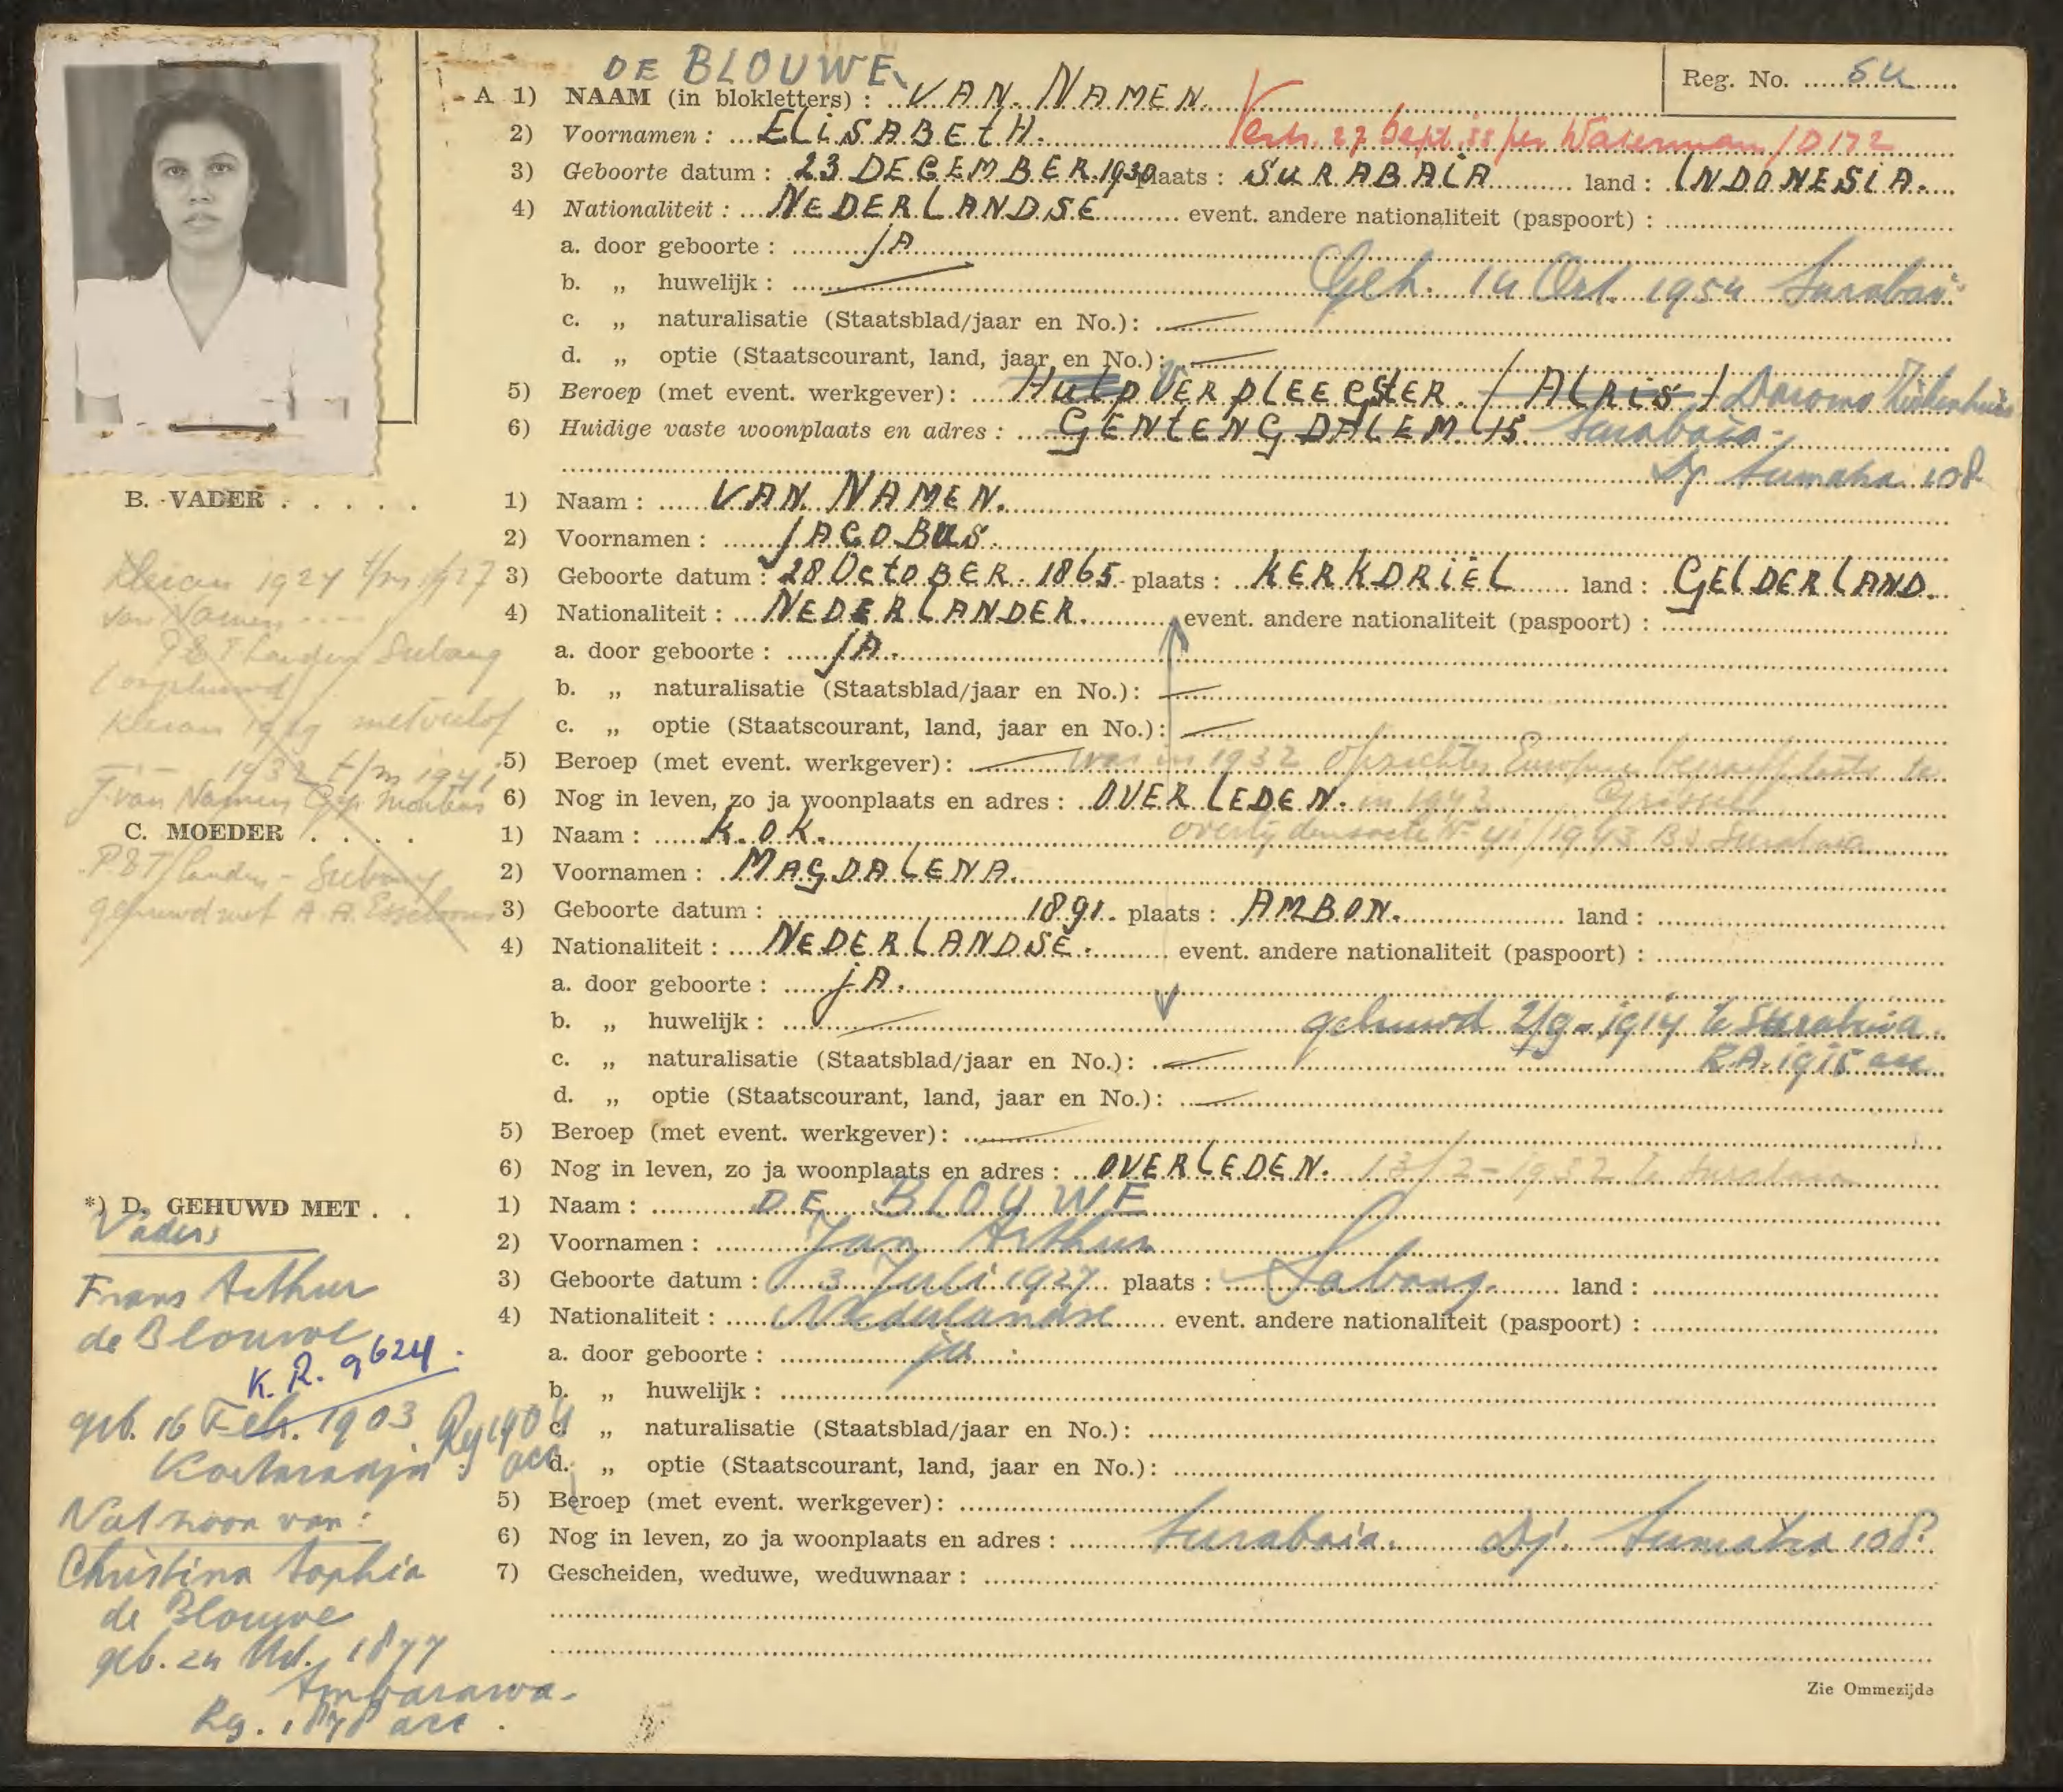 DE BLOUWE
Reg. No. ...... SU ......
A 1) NAAM (in blokletters) : VAN NAMEN.
2) Voornamen : ELISABETH. Vertr. 27 Sept. 55 per Waterman / D172
3) Geboorte datum : 23 DECEMBER 1930 plaats : SURABAIA land : INDONESIA.
4) Nationaliteit : NEDERLANDSE event. andere nationaliteit (paspoort) :
a. door geboorte : JA
b. „ huwelijk : Geh. 14 Oct. 1954
c. „ naturalisatie (Staatsblad/jaar en No.) :
d. „ optie (Staatscourant, land, jaar en No.) :
5) Beroep (met event. werkgever) : HULP VERPLEEGSTER. / ALRIS / Daromo Ziekenhuis
6) Huidige vaste woonplaats en adres : GENTENG DALEM 15 Surabaia
Dj. Sumatra 108
B. VADER . . . . .
1) Naam : VAN NAMEN.
2) Voornamen : JACOBUS.
3) Geboorte datum : 28 OctOBER 1865 plaats : KERKDRIEL land : GELDERLAND.
4) Nationaliteit : NEDERLANDER. event. andere nationaliteit (paspoort) :
a. door geboorte : JA.
b. „ naturalisatie (Staatsblad/jaar en No.) :
c. „ optie (Staatscourant, land, jaar en No.) :
5) Beroep (met event. werkgever) : was in 1932 opzichter Europ. begraafplaats te
6) Nog in leven, zo ja woonplaats en adres : OVERLEDEN. in 1943
Kleian 1924 t/m 1927
van Namen ----
P&T Landen Subang
Kleian 1929 met verlof
1932 t/m 1941
J. van Namen
P&T Landen - Subang
gehuwd met A. A.
C. MOEDER . . . .
1) Naam : KOK. overlijdensacte No 41/1943 BS Surabaia
2) Voornamen : MAGDALENA.
3) Geboorte datum : 1891. plaats : AMBON. land :
4) Nationaliteit : NEDERLANDSE. event. andere nationaliteit (paspoort) :
a. door geboorte : jA.
b. „ huwelijk : gehuwd 2/9-1914 te Surabaia.
c. „ naturalisatie (Staatsblad/jaar en No.) : RA. 1915 acc
d. „ optie (Staatscourant, land, jaar en No.) :
5) Beroep (met event. werkgever) :
6) Nog in leven, zo ja woonplaats en adres : OVERLEDEN. 13/2-1932 te Surabaia
*) D. GEHUWD MET . .
1) Naam : DE BLOUWE
2) Voornamen : Jan Arthur
3) Geboorte datum : 3 Juli 1927 plaats : Sabang land :
4) Nationaliteit : Nederlandse event. andere nationaliteit (paspoort) :
a. door geboorte : ja
b. „ huwelijk :
c. „ naturalisatie (Staatsblad/jaar en No.) :
d. „ optie (Staatscourant, land, jaar en No.) :
5) Beroep (met event. werkgever) :
6) Nog in leven, zo ja woonplaats en adres : Surabaia. Dj. Sumatra 108?
7) Gescheiden, weduwe, weduwnaar :
Vader:
Frans Arthur
de Blouwe
K. R. 9624.
geb. 16 Feb. 1903
Koetaradja
acc
Nat. zoon van :
Christina Sophia
de Blouwe
geb. 24 1877
Ambarawa.
Reg. 1878 acc.
Zie Ommezijde